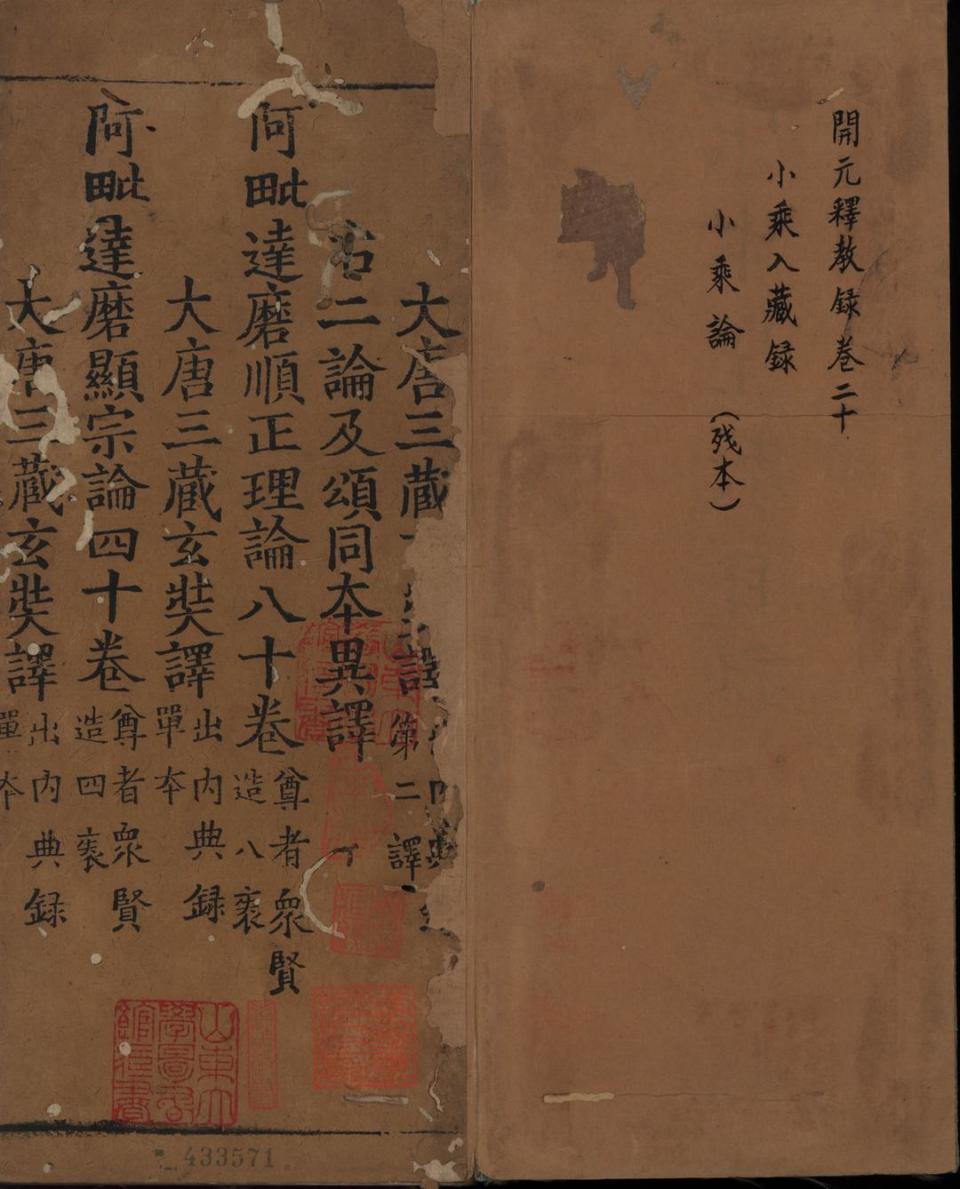 開元釋教録卷二十
小乘入藏録
小乘論(残本)
大唐三藏 譯 第二譯
右二論及頌同本異譯
阿毗達磨順正理論八十卷 尊者衆賢造八袠
大唐三藏玄奘譯 出内典録單本
阿毗達磨顯宗論四十卷 尊者衆賢造四袠
大唐三藏玄奘譯 出内典録單本
山東大學圖書館藏書
433571